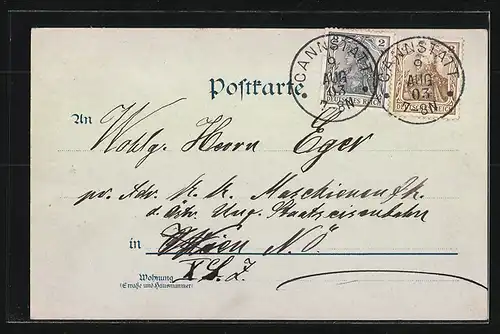 CANNSTATT
9
AUG
03
7-8N
CANNSTATT
9
AUG
03
7-8N
2
DEUTSCHES REICH
DEUTSCHES REICH
Postkarte
An
Wohlg. Herrn Eger
pr. Adr. K. K. Maschinenfk.
d. östr. Ung. Staatseisenbahn
in Wien N. Ö.
Wohnung
(Straße und Hausnummer)